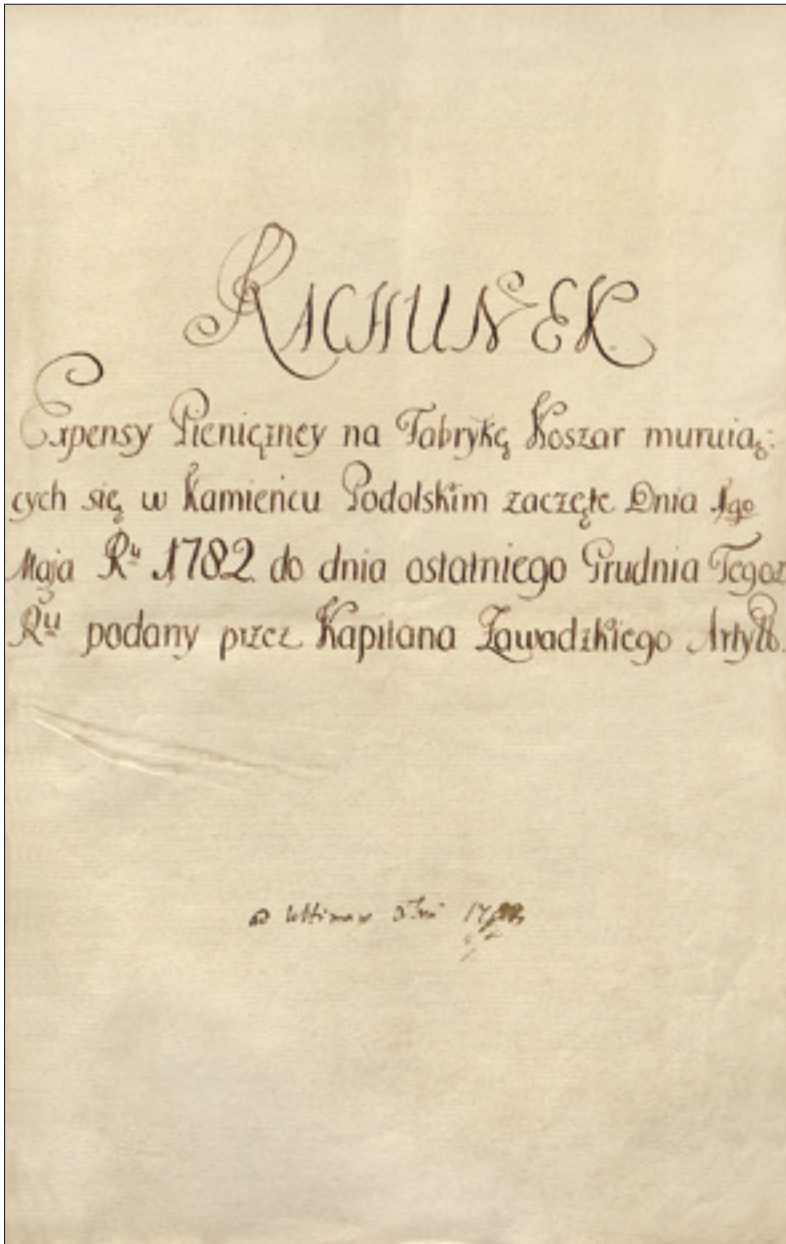 RACHUNEK
Expensy Pienięzney na Fabrykę Koszar muruią:
cych się w Kamieńcu Podolskim zaczęte Dnia 1go
Maja Ru 1782 do dnia ostatniego Grudnia Tegoz
Ru podany przez Kapitana Zawadzkiego Artyll.